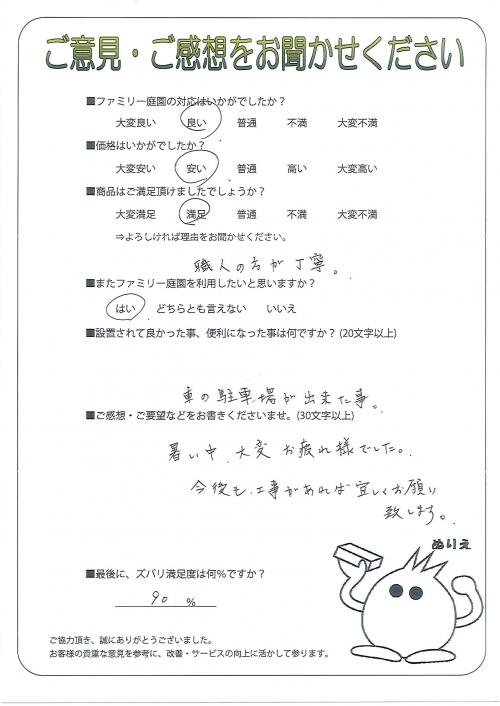 ご意見・ご感想をお聞かせください
■ファミリー庭園の対応はいかがでしたか？
大変良い 良い 普通 不満 大変不満
■価格はいかがでしたか？
大変安い 安い 普通 高い 大変高い
■商品はご満足頂けましたでしょうか？
大変満足 満足 普通 不満 大変不満
⇒よろしければ理由をお聞かせください。
職人の方が丁寧。
■またファミリー庭園を利用したいと思いますか？
はい どちらとも言えない いいえ
■設置されて良かった事、便利になった事は何ですか？(20文字以上)
車の駐車場が出来た事。
■ご感想・ご要望などをお書きくださいませ。(30文字以上)
暑い中、大変お疲れ様でした。
今後も、工事があれば宜しくお願い
致します。
ぬりえ
■最後に、ズバリ満足度は何%ですか？
90 %
ご協力頂き、誠にありがとうございました。
お客様の貴重な意見を参考に、改善・サービスの向上に活かして参ります。